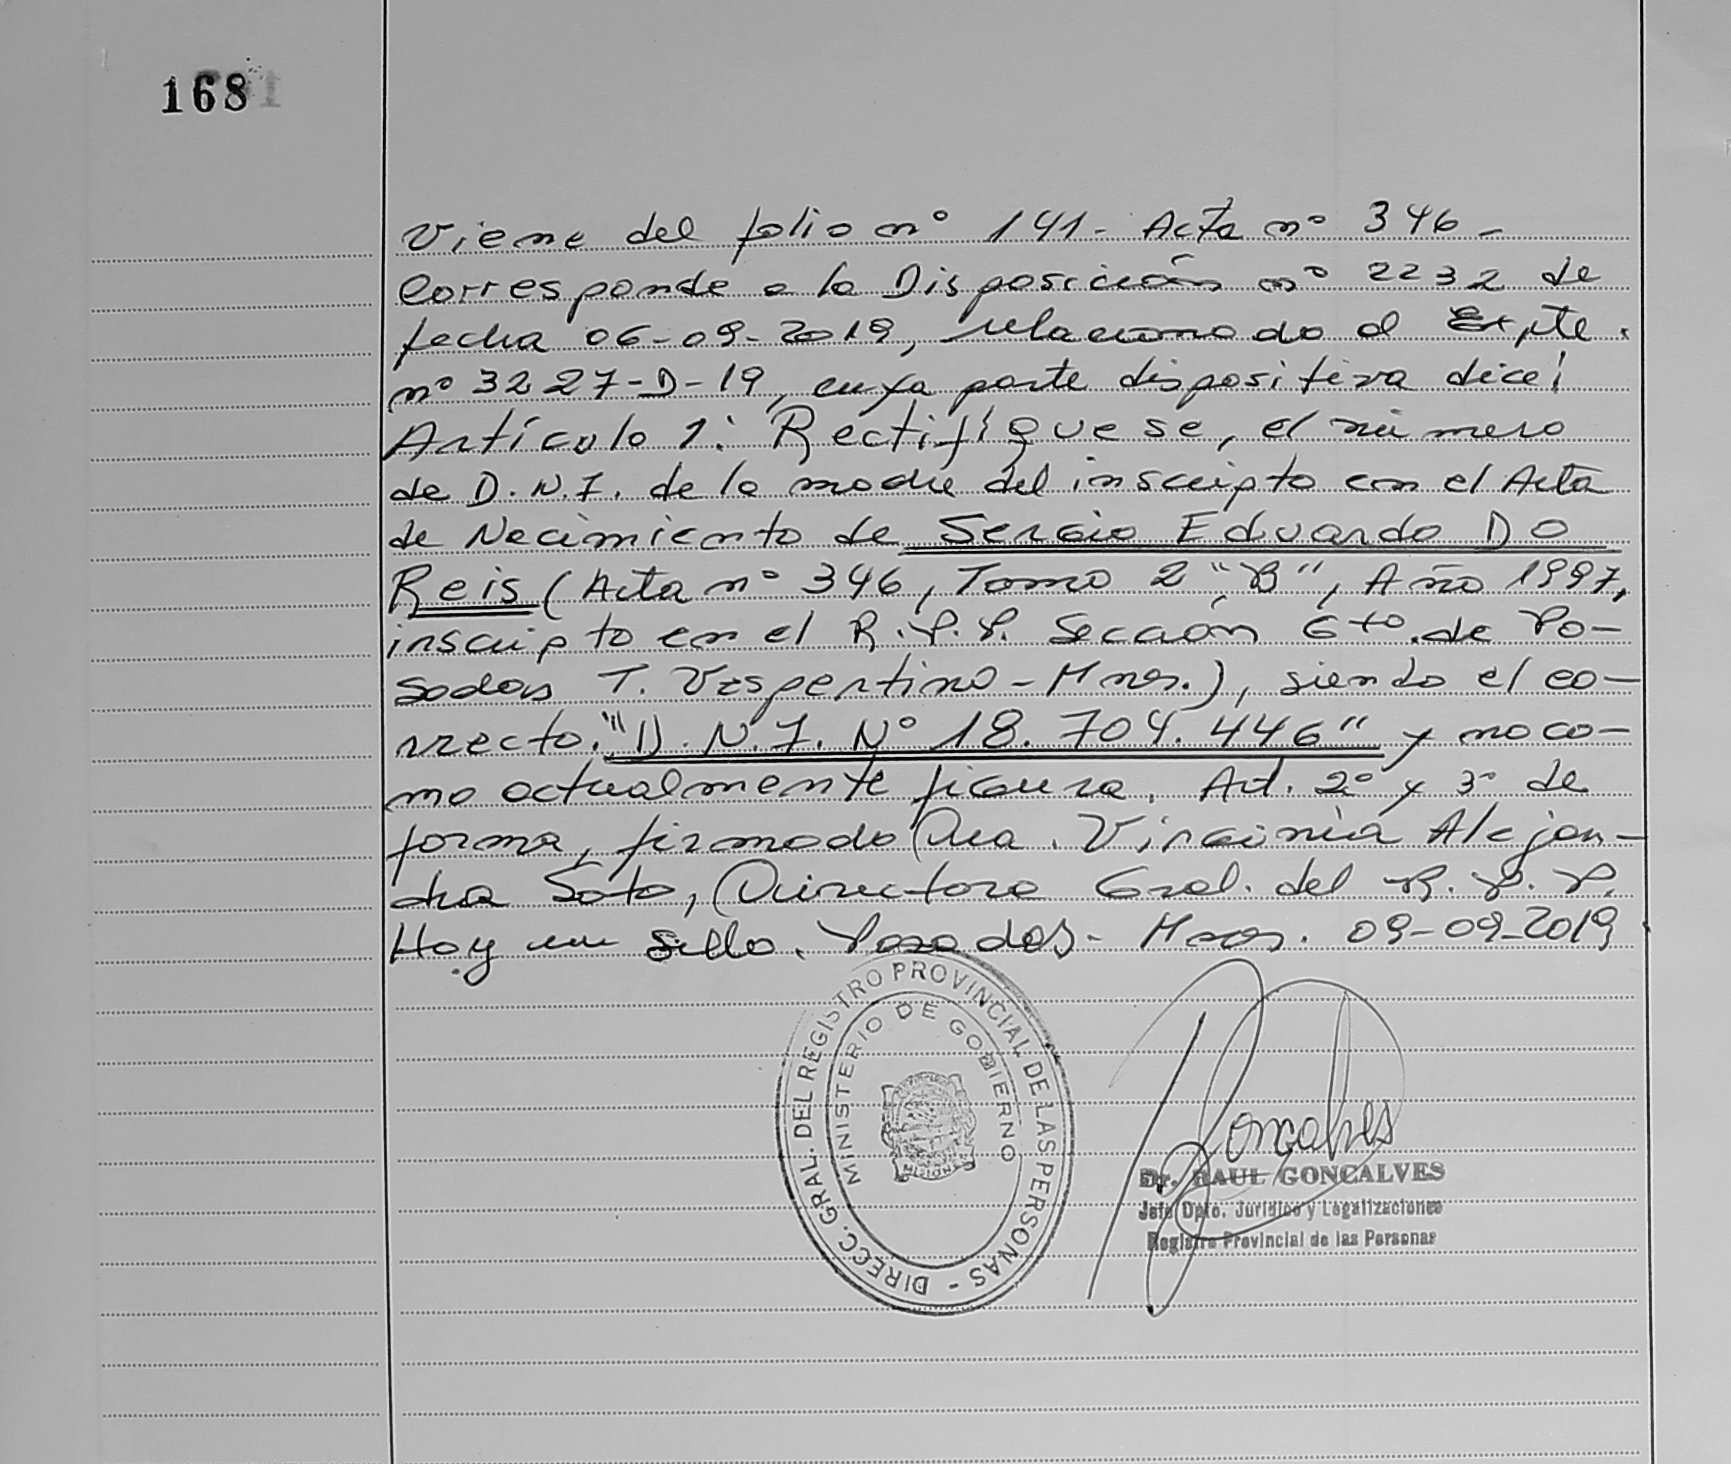 1681
Viene del folio nº 141- Acta nº 346-
Corresponde a la Disposición nº 2232 de
fecha 06-09-2019, relacionado al Expte.
nº 3227-D-19, cuya parte dispositiva dice:
Artículo 1: Rectifíquese, el número
de D.N.I. de la madre del inscripto en el Acta
de Nacimiento de Sergio Eduardo DO
Reis (Acta nº 346, Tomo 2 "B", Año 1997,
inscripto en el R.P.P. Sección 6to. de Po-
sadas T. Vespertino - Mnes.), siendo el co-
rrecto "D.N.I. Nº 18.704.446" y no co-
mo actualmente figura. Art. 2º y 3º de
forma, firmado Dra. Virginia Alejan-
dra Soto, Directora Gral. del R.P.P.
Hay un sello. Posadas - Mnes. 09-09-2019
DIRECC. GRAL. DEL REGISTRO PROVINCIAL DE LAS PERSONAS -
MINISTERIO DE GOBIERNO
MISIONES
Goncalves
Dr. RAUL GONCALVES
Jefe Dpto. Jurídico y Legalizaciones
Registro Provincial de las Personas